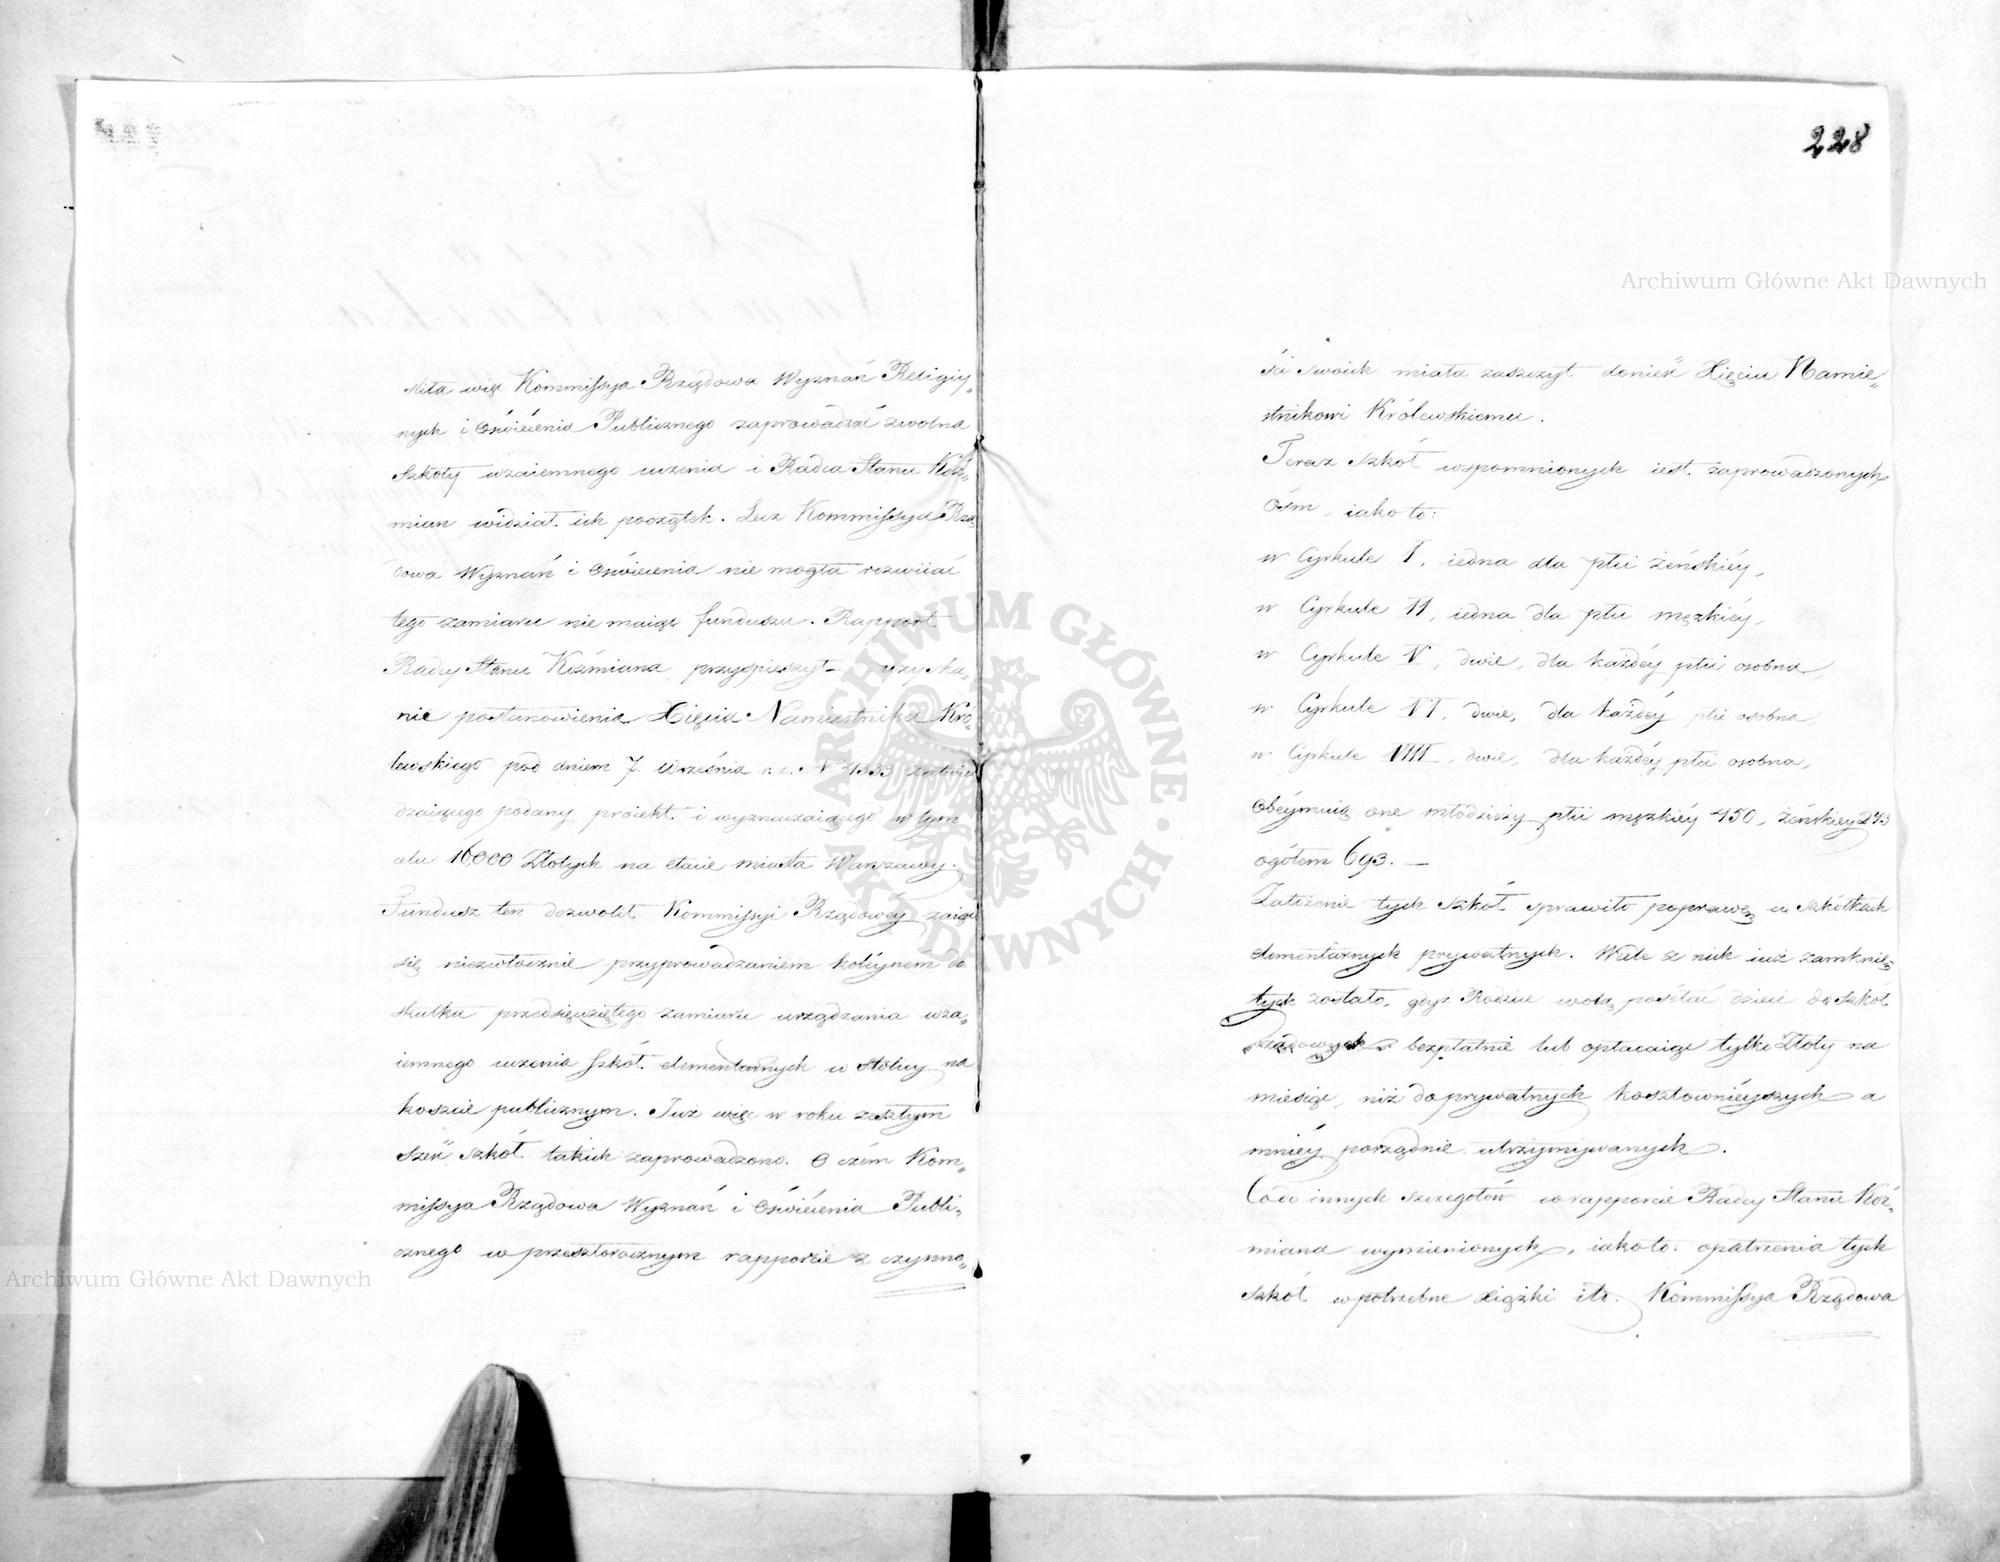 228
Archiwum Główne Akt Dawnych
ARCHIWUM GŁÓWNE AKT DAWNYCH
więc Kommissya Rządowa Wyznań Religiy„
nych i Oświécenia Publicznego zaprowadzać zwolna
szkoły wzaiemnego uczenia i Radca Stanu Koź„
mian widział ich początek. Lecz Kommissya Rzą„
dowa Wyznań i Oświécenia nie mogła rozwiiać
tego zamiaru nie maiąc funduszu. Rapport
Radcy Stanu Koźmiana przyspieszył uzyska„
nie postanowienia Xięcia Namiestnika Kró„
lewskiego pod dniem 7. Września r.z. N 4333 zatwier
dzaiącego podany proiekt i wyznaczaiącego w tym
celu 16000 Złotych na etacie miasta Warszawy.
Fundusz ten dozwolił Kommissyi Rządowéy zaiąć
się niezwłocznie przyprowadzaniem koléynem do
skutku przedsięwziętego zamiaru urządzania wza„
iemnego uczenia szkół elementarnych w stolicy na
koszcie publicznym. Już więc w roku zeszłym
sześć szkół takich zaprowadzono. O czém Kom„
missya Rządowa Wyznań i Oświécenia Publi„
cznego w przeszłorocznym rapporcie z czynno„
ści swoich miała zaszczyt donieść Xięciu Namie„
stnikowi Królewskiemu.
Teraz szkół wspomnionych iest zaprowadzonych
óśm, iako to:
w Cyrkule I, iedna dla płci żeńskiéy,
w Cyrkule II, iedna dla płci męzkiéy,
w Cyrkule V, dwie, dla każdéy płci osobna,
w Cyrkule VI, dwie, dla każdéy płci osobna,
w Cyrkule VIII, dwie, dla każdéy płci osobna,
Obéymuią one młodzieży płci męzkiéy 450, żeńskiey 243
ogółem 693. —
Założenie tych szkół sprawiło poprawę w szkółkach
elementarnych prywatnych. Wiele z nich iuż zamknię„
tych zostało, gdyż Rodzice wolą posełać dzieci do szkół
rządowych bezpłatnie lub opłacaiąc tylko Złoty na
miesiąc, niż do prywatnych kosztownieyszych a
mniéy porządnie utrzymywanych.
Co do innych szczegółów w rapporcie Radcy Stanu Koź„
miana wymienionych, iako to: opatrzenia tych
szkół w potrzebne xiążki itd. Kommissya Rządowa
Archiwum Główne Akt Dawnych